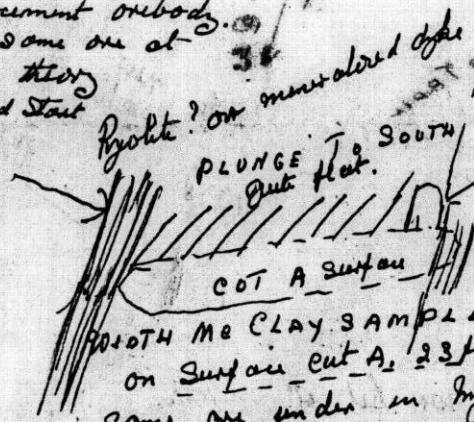 cement orebody.
Some ore at
theory
d Start
Ryolite? or mineralized dyke
PLUNGE To SOUTH
Quite flat.
CUT A Surface
WIDTH Mc CLAY SAMPL
on Surface Cut A. 23
Same ore under in